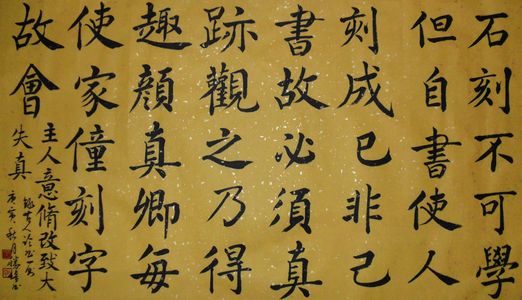 石刻不可學
但自書使人
刻成已非己
書故必須真
跡觀之乃得
趣顏真卿每
使家僮刻字
故會
主人意脩改致大
失真
庚寅秋月